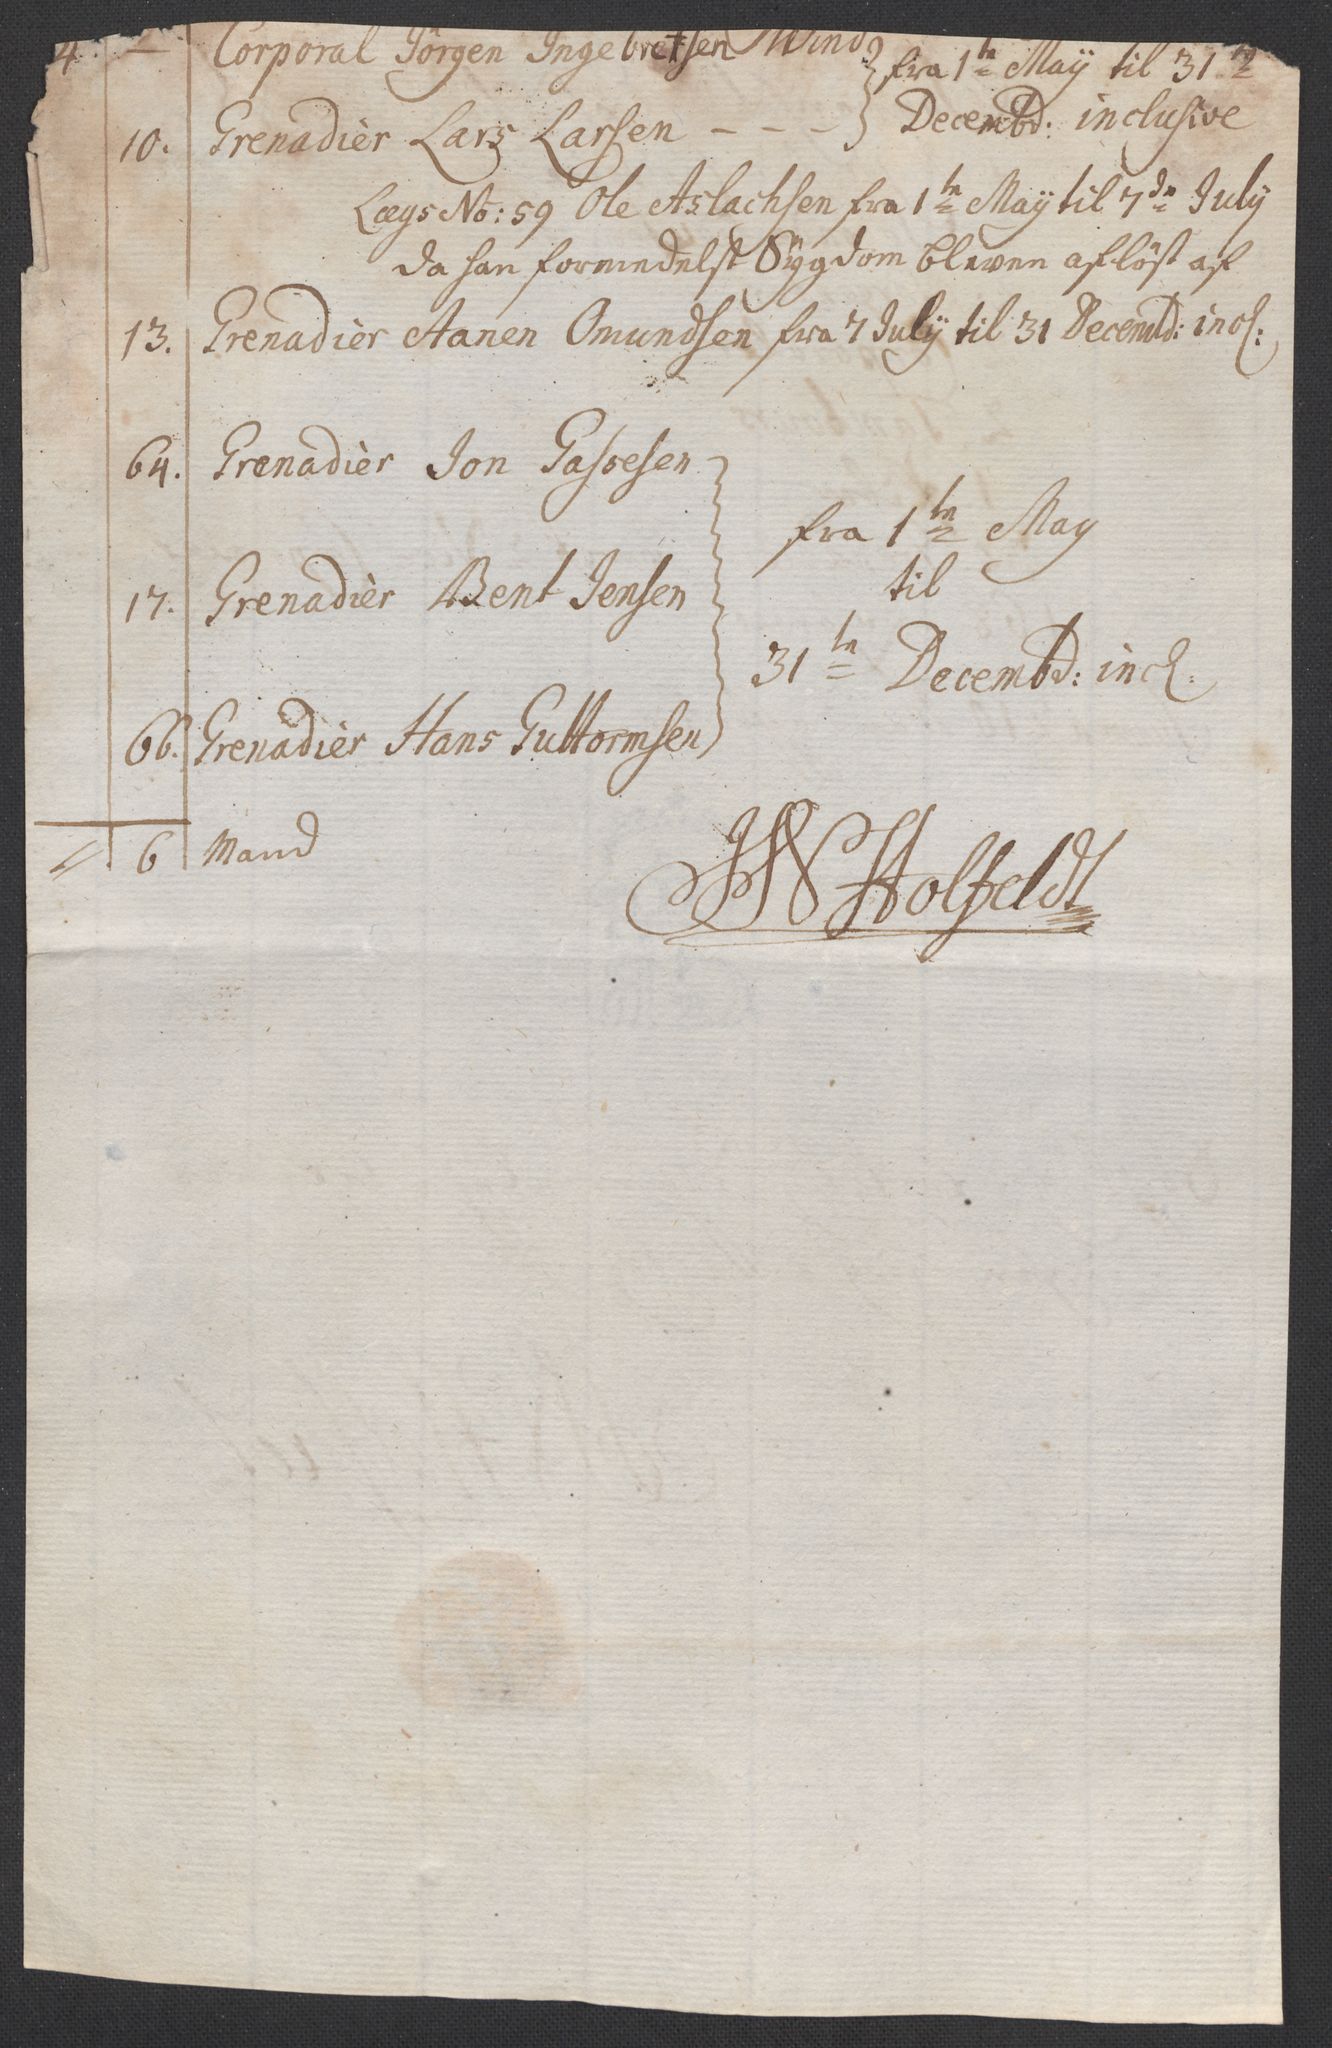 4 Corporal Jörgen Ingebretsen Wind fra 1te May til 31te
10. Grenadier Lars Larsen - - - Decembd: inclusive
Lægs No: 59 Ole Aslachsen fra 1te May til 7de July
da han formedelst Sÿgdom bleven aflöst af
13. Grenadier Aanen Omundsen fra 7 July til 31 Decembd: incl:
64. Grenadier Jon Gassesen
fra 1te May
17. Grenadier Bent Jensen
til
31te Decembd: incl.
66. Grenadier Hans Guttormsen
6 Mand
Holfeldt